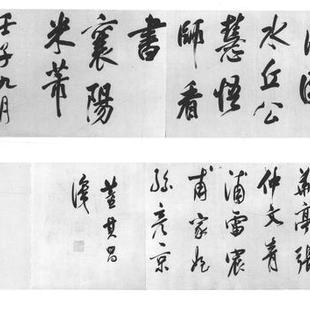 水丘公
慧悟
師看
書
襄陽
米芾
壬子九月
仲文青
浦雷宸
甫家
孫彥京
董其昌